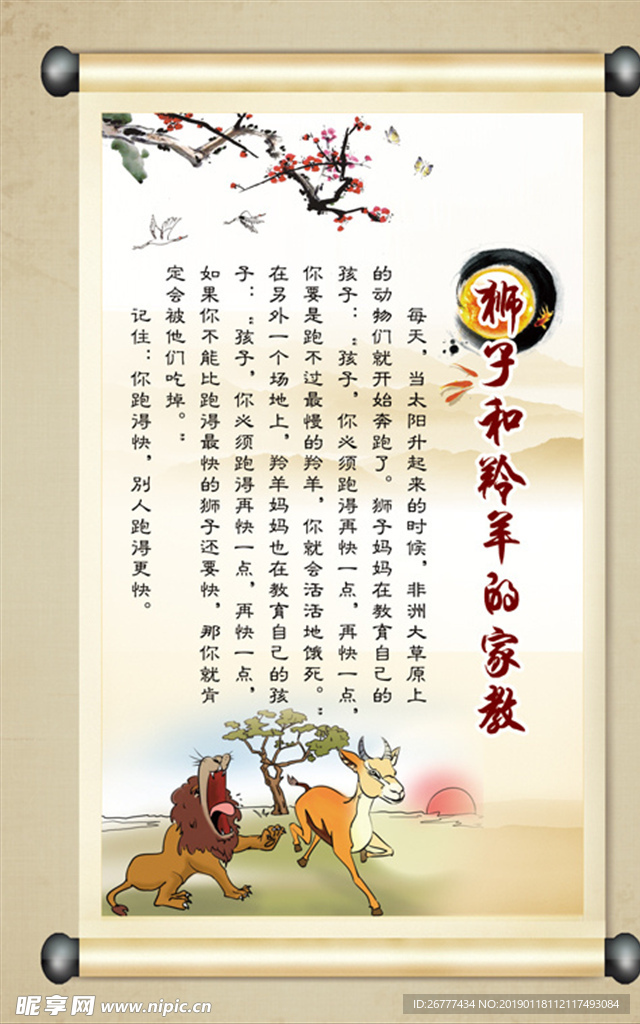 狮子和羚羊的家教
每天，当太阳升起来的时候，非洲大草原上
的动物们就开始奔跑了。狮子妈妈在教育自己的
孩子：“孩子，你必须跑得再快一点，再快一点，
你要是跑不过最慢的羚羊，你就会活活地饿死。”
在另外一个场地上，羚羊妈妈也在教育自己的孩
子：“孩子，你必须跑得再快一点，再快一点，
如果你不能比跑得最快的狮子还要快，那你就肯
定会被他们吃掉。”
记住：你跑得快，别人跑得更快。
昵享网 www.nipic.cn
ID:26777434 NO:20190118112117493084